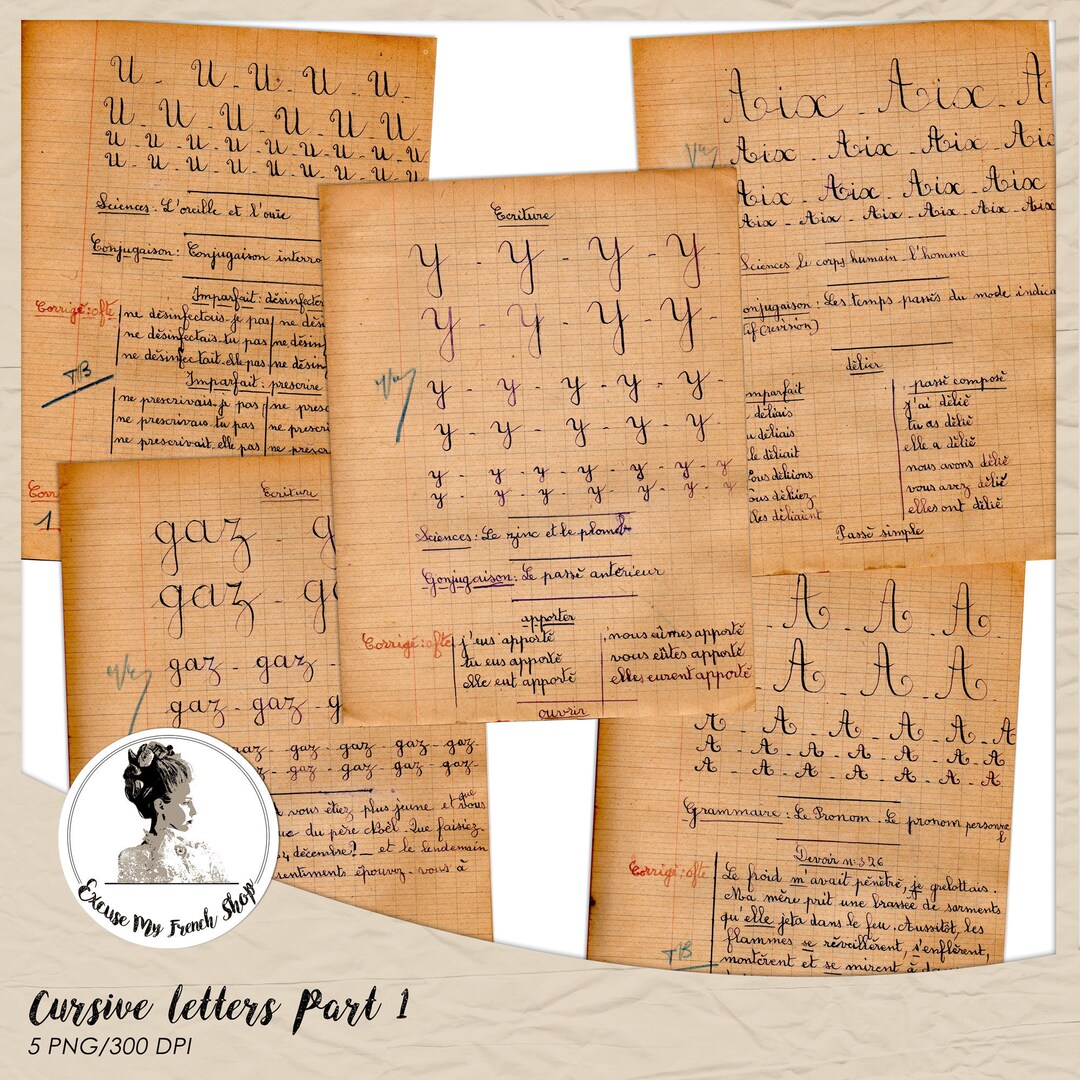 U - U - U - U - U -
U - U - U - U - U - U -
U - U - U - U - U - U - U - U
U - U - U - U - U - U - U - U
Sciences - L'oreille et l'ouïe
Conjugaison : Conjugaison interro
Imparfait : désinfecter
Corrigé : ofte
ne désinfectais-je pas | ne dési
ne désinfectais-tu pas | ne désin
ne désinfectait-elle pas | ne désin
TB
Imparfait : prescrire
ne prescrivais-je pas | ne presc
ne prescrivais-tu pas | ne prescri
ne prescrivait-elle pas | ne prescr
Corr
1
Aix - Aix - A
Aix - Aix - Aix - Aix
Aix - Aix - Aix - Aix
Aix - Aix - Aix - Aix - Aix - Aix
Sciences le corps humain - l'homme
onjugaison : Les temps passés du mode indica
tif (revision)
délier
mparfait
déliais
u déliais
le déliait
ous déliions
ous déliiez
lles déliaient
passé composé
j'ai délié
tu as délié
elle a délié
nous avons délié
vous avez délié
elles ont délié
Passé simple
Ecriture
y - y - y - y
y - y - y - y -
y - y - y - y - y
y - y - y - y - y
y - y - y - y - y - y - y
y - y - y - y - y - y - y
Sciences : Le zinc et le plomb
Conjugaison : Le passé antérieur
apporter
Corrigé : ofte
j'eus apporté
tu eus apporté
elle eut apporté
nous eûmes apporté
vous eûtes apporté
elles eurent apporté
ouvrir
Ecriture
gaz - g
gaz - ga
gaz - gaz - g
gaz - gaz - g
gaz - gaz - gaz - gaz - gaz
gaz - gaz - gaz - gaz
vous étiez plus jeune et que vous
du père Noël. Que faisiez-
4 décembre ? _ et le lendemain
sentiments épouvez-vous à
A - A - A
A - A - A -
A - A - A - A - A - A
A - A - A - A - A - A
A - A - A - A - A - A - A
Grammaire : Le Pronom - Le pronom personne
l
Devoir n: 326
Corrigé : ofte
Le froid m'avait pénétré, je grelottais.
Ma mère prit une brassée de sarments
qu'elle jeta dans le feu. Aussitôt, les
flammes se réveillèrent, s'enflèrent,
TB
montèrent et se mirent à
Excuse My French Shop
Cursive letters Part 1
5 PNG/300 DPI